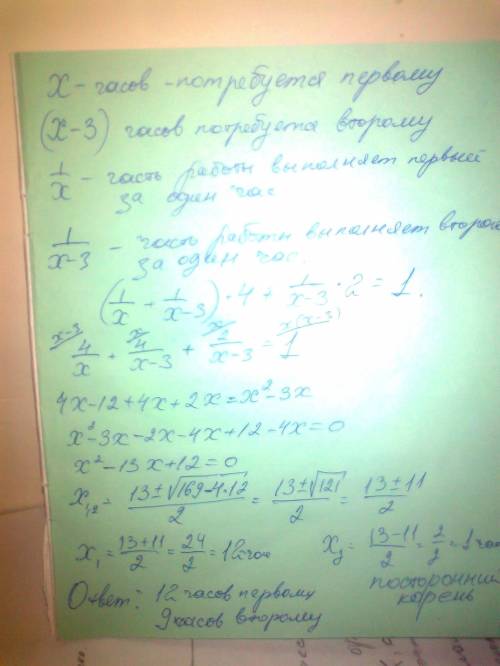 x - часов - потребуется первому
(x-3) часов потребуется второму
1/x - часть работы выполняет первый
за один час
1/(x-3) - часть работы выполняет второй
за один час.
(1/x + 1/(x-3)) · 4 + 1/(x-3) · 2 = 1.
x-3/ 4/x + x/ 4/(x-3) + x/ 2/(x-3) = x(x-3)/ 1
4x-12+4x+2x=x²-3x
x²-3x-2x-4x+12-4x=0
x²-13x+12=0
x₁,₂= (13±√(169-4·12))/2 = (13±√121)/2 = (13±11)/2
x₁= (13+11)/2 = 24/2 = 12 час x₂= (13-11)/2 = 2/2 = 1 час
посторонний
корень
Ответ: 12 часов первому
9 часов второму